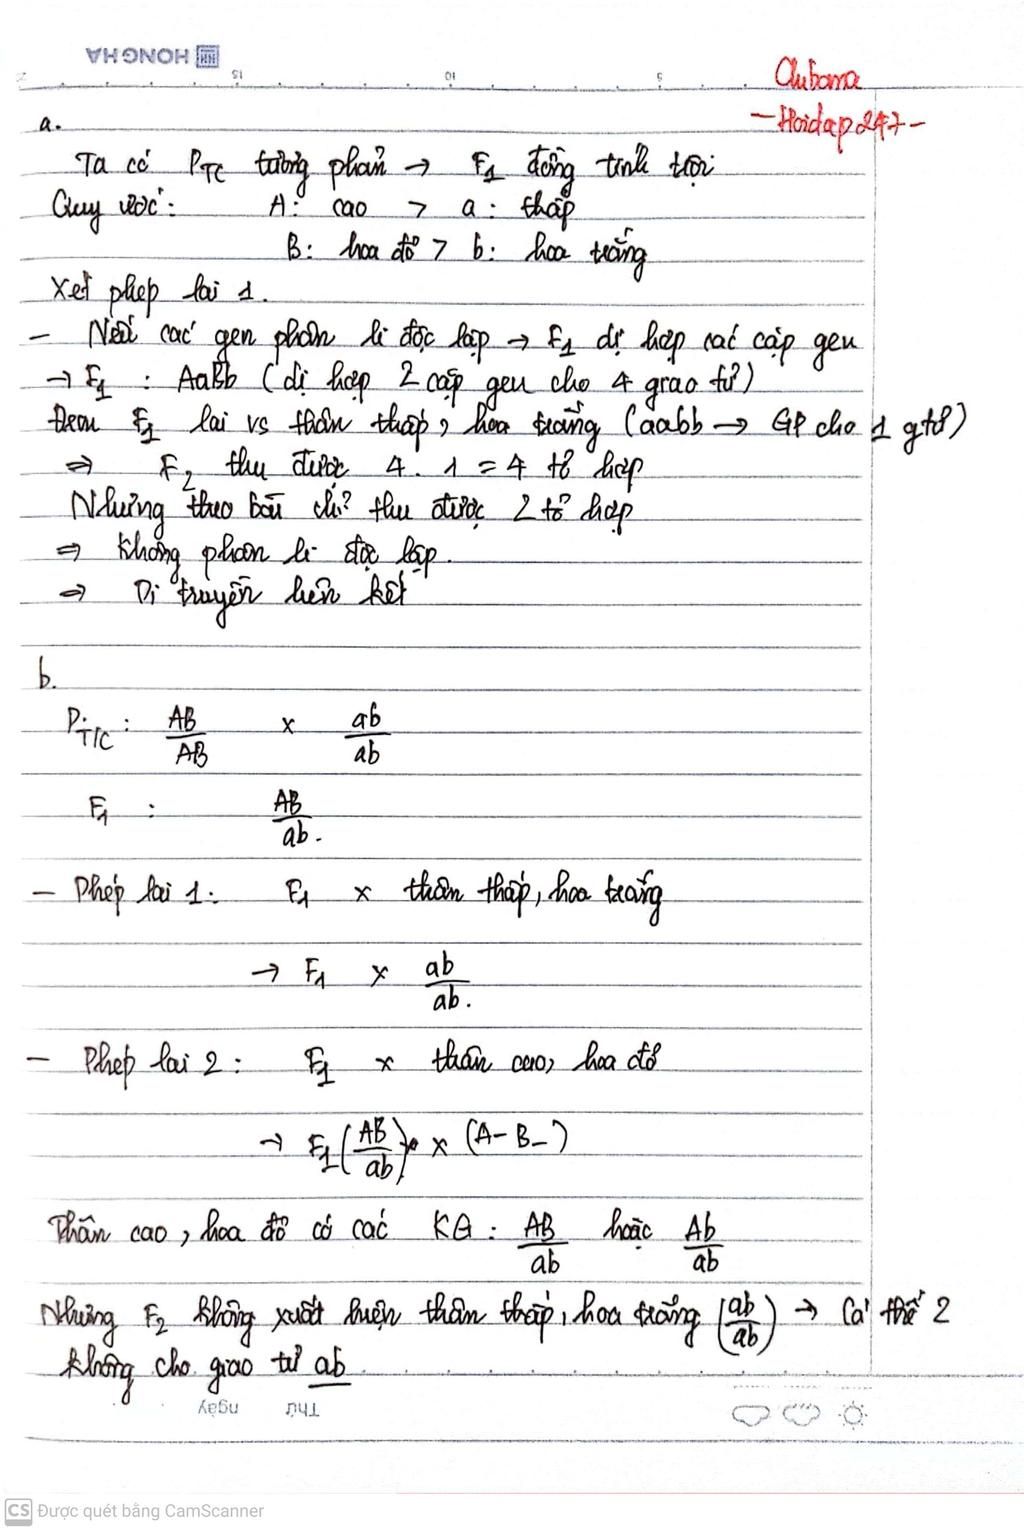 HONG HA
15 10 5
Clubama
- Hoidap247 -
a.
Ta có P_TC tương phản → F1 đồng tính trội
Quy ước: A: cao > a: thấp
B: hoa đỏ > b: hoa trắng
Xét phép lai 1.
- Nếu các gen phân li độc lập → F1 dị hợp các cặp gen
→ F1 : AaBb (dị hợp 2 cặp gen cho 4 giao tử)
Đem F1 lai vs thân thấp, hoa trắng (aabb → GP cho 1 gtử)
⇒ F2 thu được 4 . 1 = 4 tổ hợp
Nhưng theo bài chỉ thu được 2 tổ hợp
⇒ Không phân li độc lập.
⇒ Di truyền liên kết
b.
P_T/C : AB/AB x ab/ab
F1 : AB/ab.
- Phép lai 1: F1 x thân thấp, hoa trắng
→ F1 x ab/ab.
- Phép lai 2 : F1 x thân cao, hoa đỏ
→ F1 (AB/ab) x (A-B-)
Thân cao, hoa đỏ có các KG : AB/ab hoặc Ab/ab
Nhưng F2 không xuất hiện thân thấp, hoa trắng (ab/ab) → Cá thể 2
không cho giao tử ab
Thứ Ngày
CS Được quét bằng CamScanner